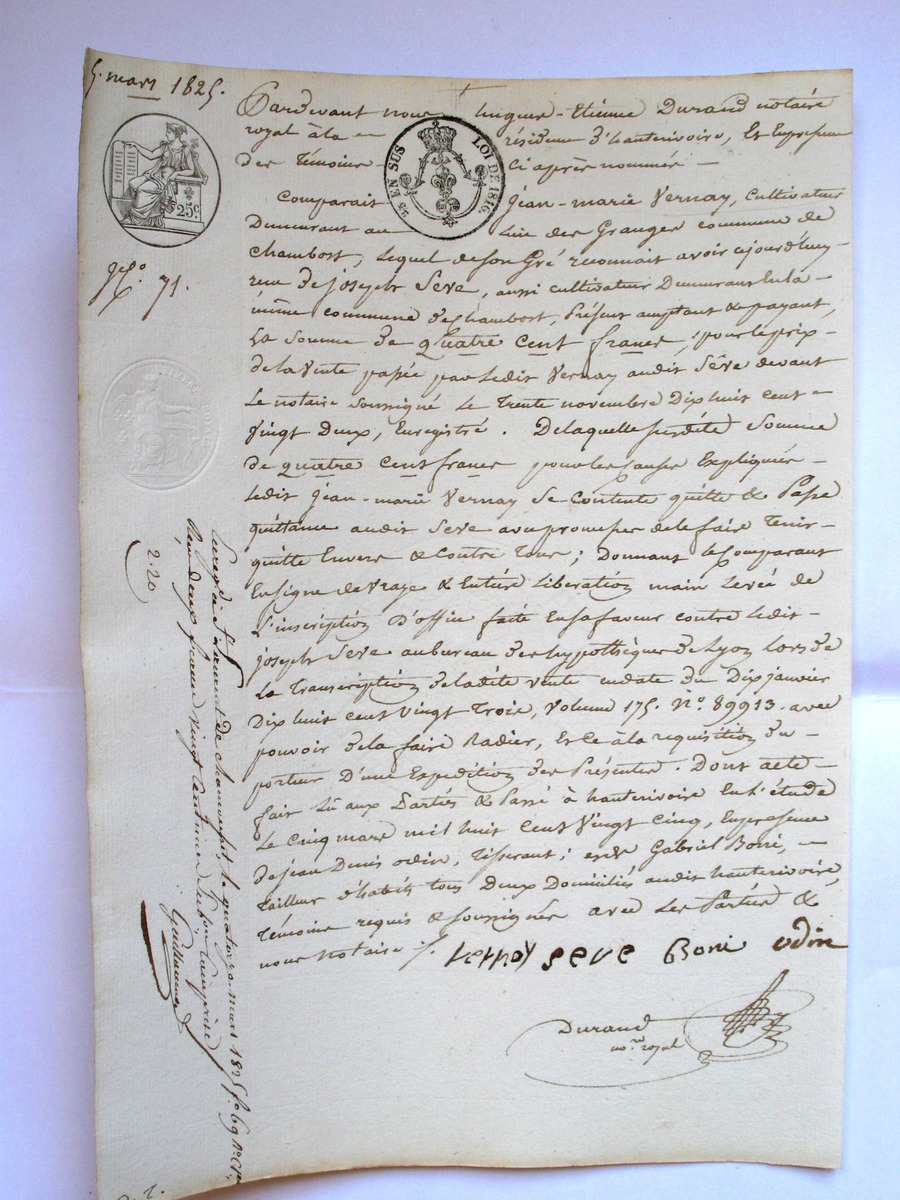 5. mars 1825.
Pardevant nous hugues-Etienne Durand notaire
royal à la résidence d'hauterivoire, Et En presence
des Témoins ci après nommés —
Comparait Jean-marie Vernay, cultivateur
Demeurant au lieu des Granges commune de
chambost, lequel de son Gré reconnait avoir aujourd'huy
reçu de joseph Seve, aussi cultivateur Demeurant En la
même commune de chambost, Présent acceptant & payant,
La Somme de quatre cent francs, pour le prix
de la Vente passée par ledit Vernay audit Sêve devant
Le notaire soussigné Le Trente novembre Dix huit cent
Vingt Deux, Enregistré. De laquelle susdite Somme
de quatre cent francs pour les causes Expliquées
ledit Jean-marie Vernay Se Contente quitte & Passe
quittance audit Seve avec promesse de le faire Tenir
quitte Envers & Contre Tous; Donnant le Comparant
En signe de Vraye & Entière Libération main Levée de
l'inscription D'office faite En sa faveur contre ledit
joseph Seve au bureau des hypothèques de Lyon Lors de
La Transcription de ladite Vente En date du Dix janvier
Dix huit cent Vingt Trois, Volume 175. N°. 89913. avec
pouvoir de la faire Radier, Et Ce à la requisition du
porteur D'une Expedition des Présentes. Dont acte
fait Lû aux Parties & Passé à hauterivoire En l'étude
Le Cinq mars mil huit Cent Vingt Cinq, En presence
de jean Denis odin, Tisserant; et de Gabriel Boni,
tailleur d'habits tous Deux Domiciliés audit hauterivoire,
Témoins requis & soussignés avec Les Parties &
nous Notaire.
Vernay seve Boni odin
Durand
no.re royal
25 EN SUS
LOI DE 1816.
25c
N°. 71.
Enregistré à St. Laurent de chamousset, le quatorze mars 1825 f.o 69
Reçu deux francs vingt centimes subvention comprise
Guillaume
2.20